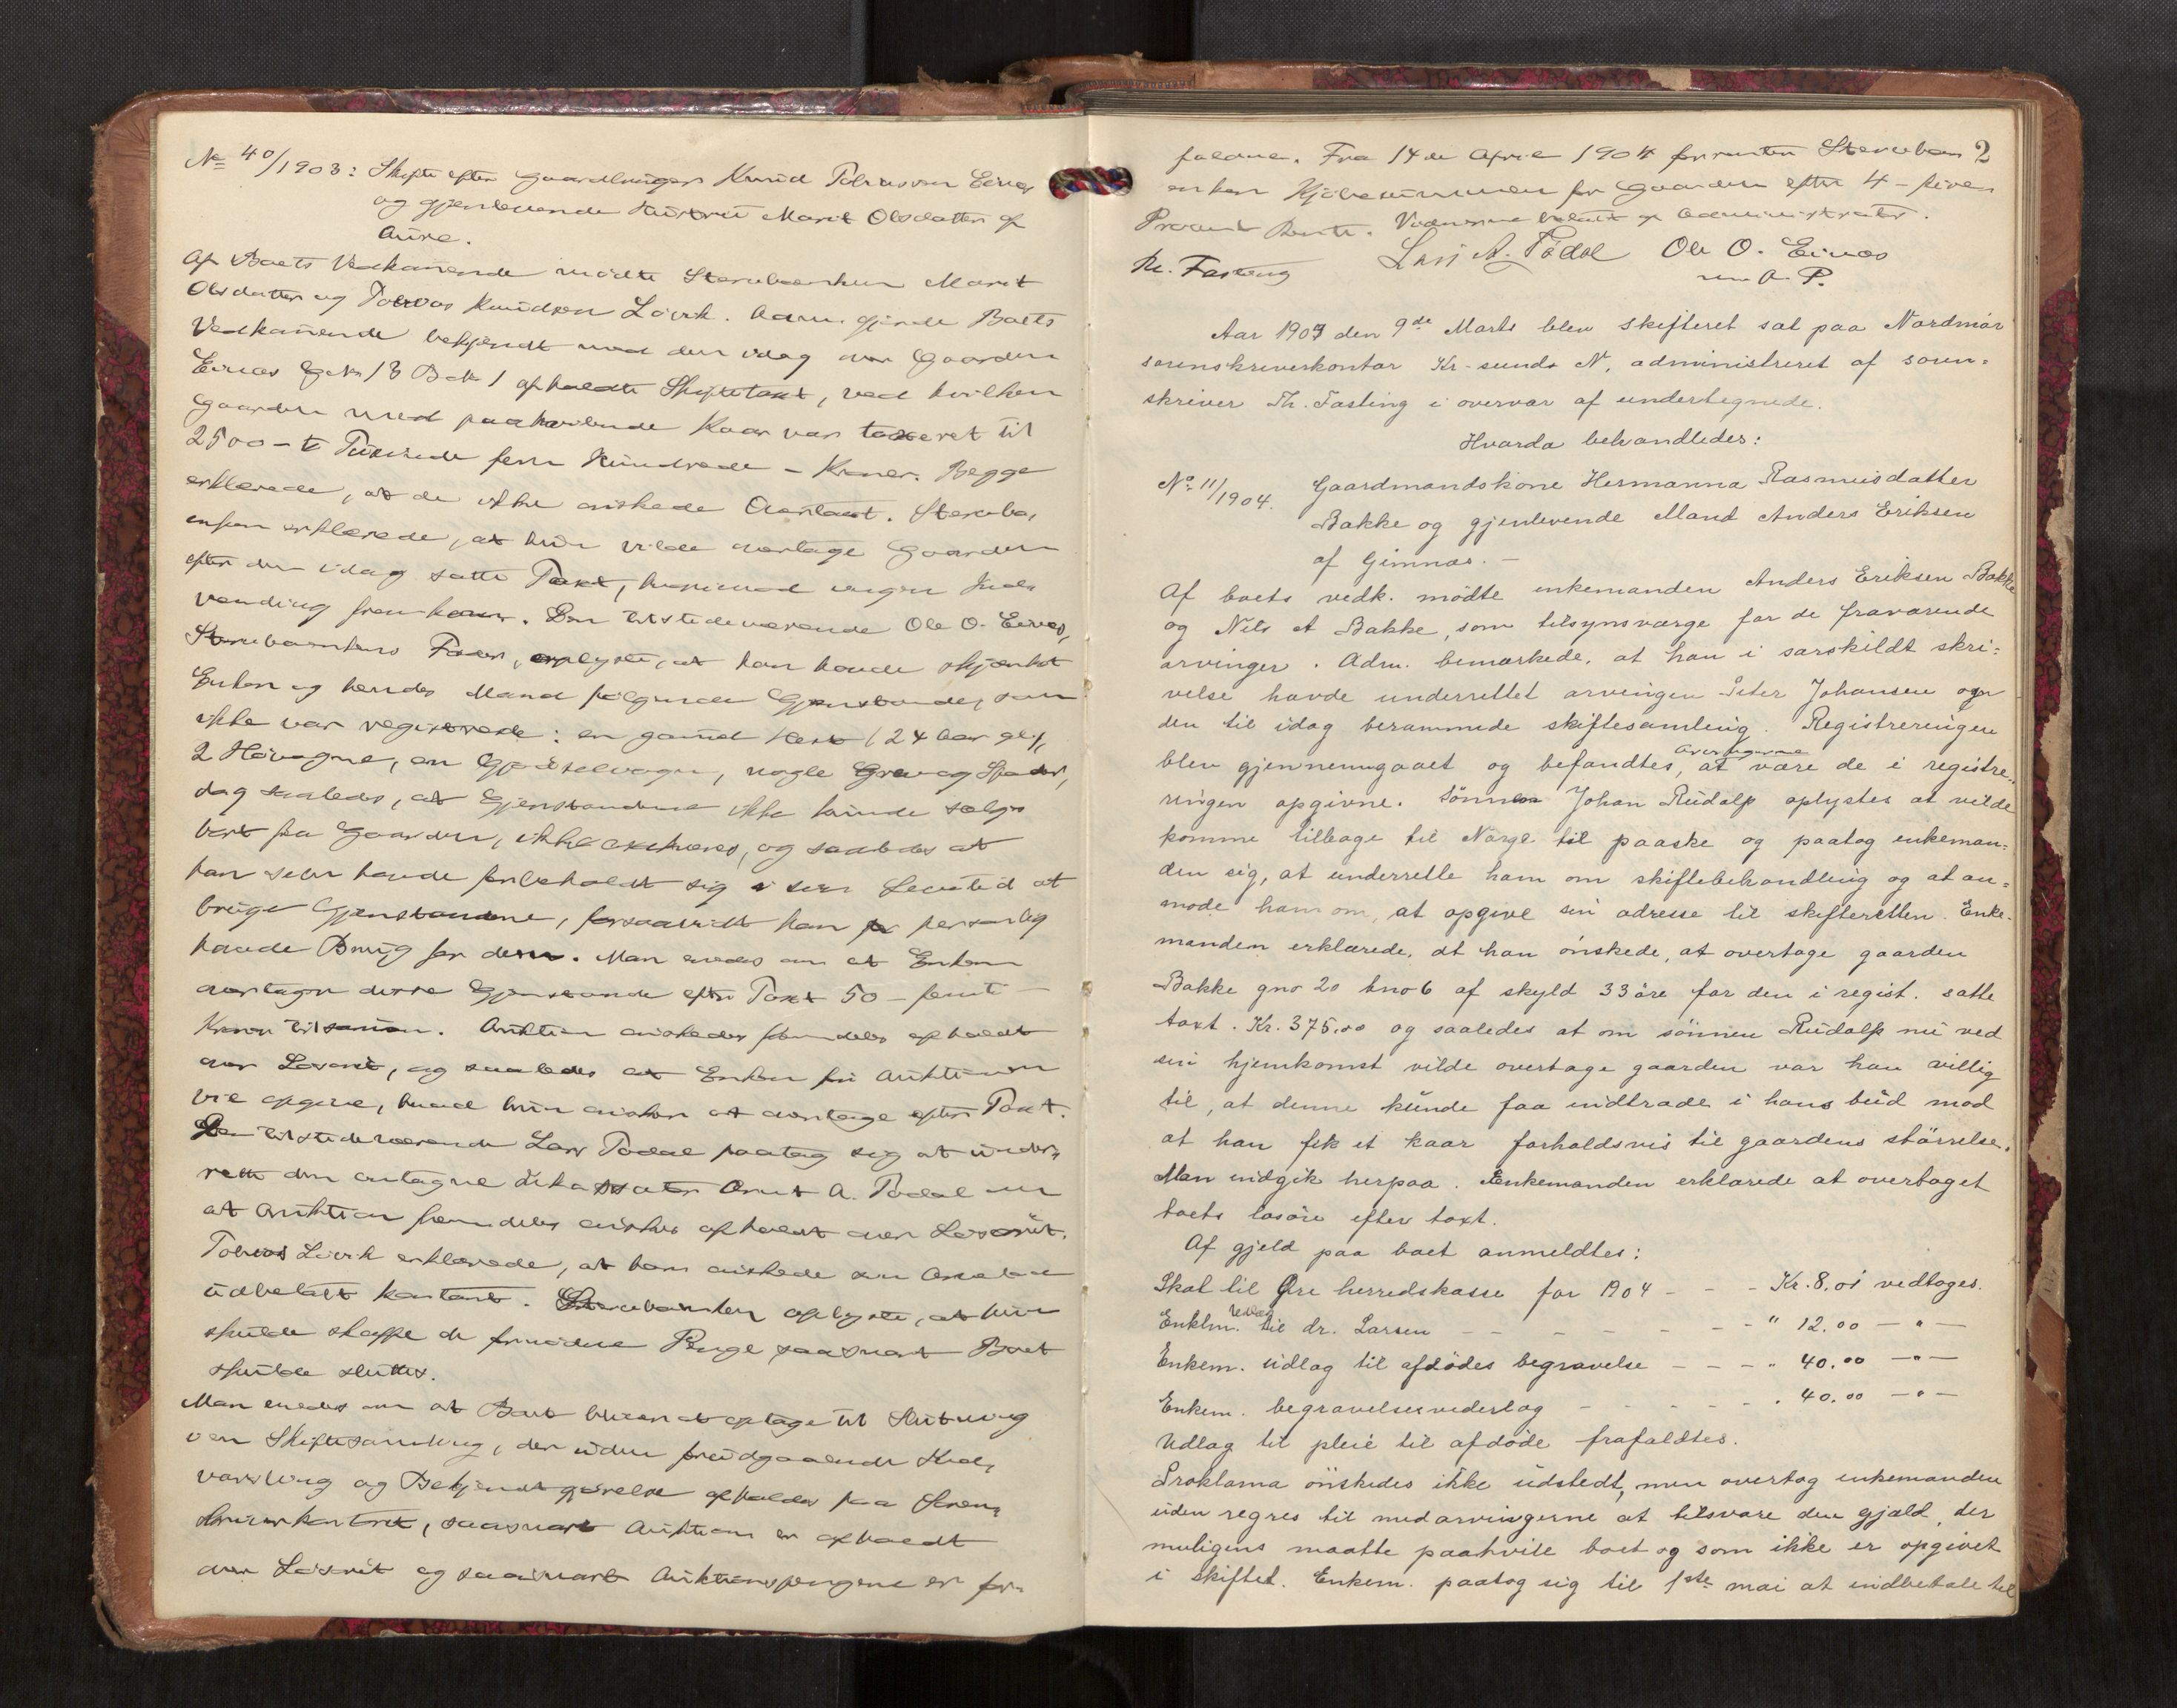 No 40/1903: Skifte efter Gaardbruger Knud Tobiassen Eines
og gjenlevende Hustru Marit Olsdatter af
Aure.
Af Boets Vedkommende mødte Stervboenken Marit
Olsdatter og Tobias Knudsen Lervik. Adm. gjorde Boets
Vedkommende bekjendt med den idag over Gaarden
Eines G.No 13 B.No 1 afholdte Skiftetaxt, ved hvilken
Gaarden med paahvilende Kaar var taxeret til
2500 - to Tusinde fem Hundrede - Kroner. Begge
erklærede, at de ikke ønskede Overtaxt. Stervbo-
enken erklærede, at hun vilde overtage Gaarden
efter den idag satte Taxt, hvorimod ingen Ind-
vending fremkom. Den tilstedeværende Ole O. Eines,
Stervboenkens Fader, oplyste, at han havde skjænket
Enken og hendes Mand følgende Gjenstande, som
ikke var registrerede: en gammel Hest (24 Aar gl.),
2 Høvogne, en Gjødselvogn, nogle Grev og Spader,
dog saaledes, at Gjenstandene ikke kunde sælges
bort fra Gaarden, ikke exekveres, og saaledes at
han selv havde forbeholdt sig i sin Levetid at
bruge Gjenstandene, forsaavidt han personlig
havde Brug for dem. Man enedes om at Enken
overtager disse Gjenstande efter Taxt 50 - femti -
Kroner tilsammen. Auktion ønskedes fremdeles afholdt
over Løsøret, og saaledes at Enken før Auktionen
vil opgive, hvad hun ønsker at overtage efter Taxt.
Den tilstedeværende Lars Todal paatog sig at under-
rette den antagne Inkassator Arnt A. Todal om
at Auktion fremdeles ønskes afholdt over Løsøret.
Tobias Lervik erklærede, at han ønskede sin Arvelod
udbetalt kontant. Stervboenken oplyste, at hun
skulde skaffe de fornødne Penge saasnart Boet
skulde sluttes.
Man enedes om at Boet bliver at optage til Slutning
i en Skiftesamling, der uden forudgaaende Ind-
varsling og Bekjendtgjørelse afholdes paa Soren-
skriverkontoret, saasnart Auktion er afholdt
over Løsøret og saasnart Auktionspengene er for-
2
faldne. Fra 14de April 1904 forrenter Stervbo-
enken Kjøbesummen for Gaarden efter 4 - fire -
Procent Rente. Vidnerne betalt af Administrator.
Th. Fasting Lars A. Todal Ole O. Eines
m. P.
Aar 1904 den 9de Marts blev skifteret sat paa Nordmør
sorenskriverkontor Kr.sund N, administreret af soren-
skriver Th. Fasting i overvær af undertegnede.
Hvorda behandledes:
No 11/1904. Gaardmandskone Hermanna Rasmusdatter
Bakke og gjenlevende Mand Anders Eriksen
af Gimnæs. -
Af boets vedk. mødte enkemanden Anders Eriksen Bakke
og Nils A Bakke, som tilsynsværge for de fraværende
arvinger. Adm. bemærkede, at han i særskildt skri-
velse havde underrettet arvingen Peter Johansen om
den til idag berammede skiftesamling. Registreringen
blev gjennemgaaet og befandtes, arvingerne at være de i registre-
ringen opgivne. Sønnen Johan Rudolf oplystes at vilde
komme tilbage til Norge til paaske og paatog enkeman-
den sig, at underrette ham om skiftebehandling og at an-
mode ham om, at opgive sin adresse til skifteretten. Enke-
manden erklærede, at han ønskede, at overtage gaarden
Bakke gno 20 bno 6 af skyld 33 øre for den i regist. satte
taxt. Kr. 375,00 og saaledes at om sønnen Rudolf nu ved
sin hjemkomst vilde overtage gaarden var han villig
til, at denne kunde faa indtræde i hans bud mod
at han fik et kaar forholdsvis til gaardens størrelse.
Man indgik herpaa. Enkemanden erklærede at overtaget
boets løsøre efter taxt.
Af gjeld paa boet anmeldtes:
Skat til Øre herredskasse for 1904 - - - Kr. 8,01 vedtoges.
Enklm. udlæg til dr. Larsen - - - - - - - " 12.00 - " -
Enkem. udlæg til afdødes begravelse - - - - " 40.00 - " -
Enkem. begravelsesvederlag - - - - - " 40.00 - " -
Udlæg til pleie til afdøde frafaldtes.
Proklama ønskedes ikke udstedt, men overtog enkemanden
uden regres til medarvingerne at tilsvare den gjæld, der
muligens maatte paahvile boet og som ikke er opgivet
i skiftet. Enkem. paatog sig til 1ste mai at indbetale til